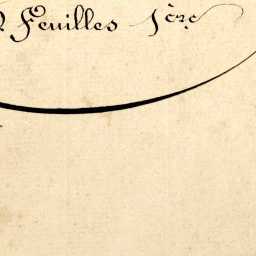 Feuilles 1ère